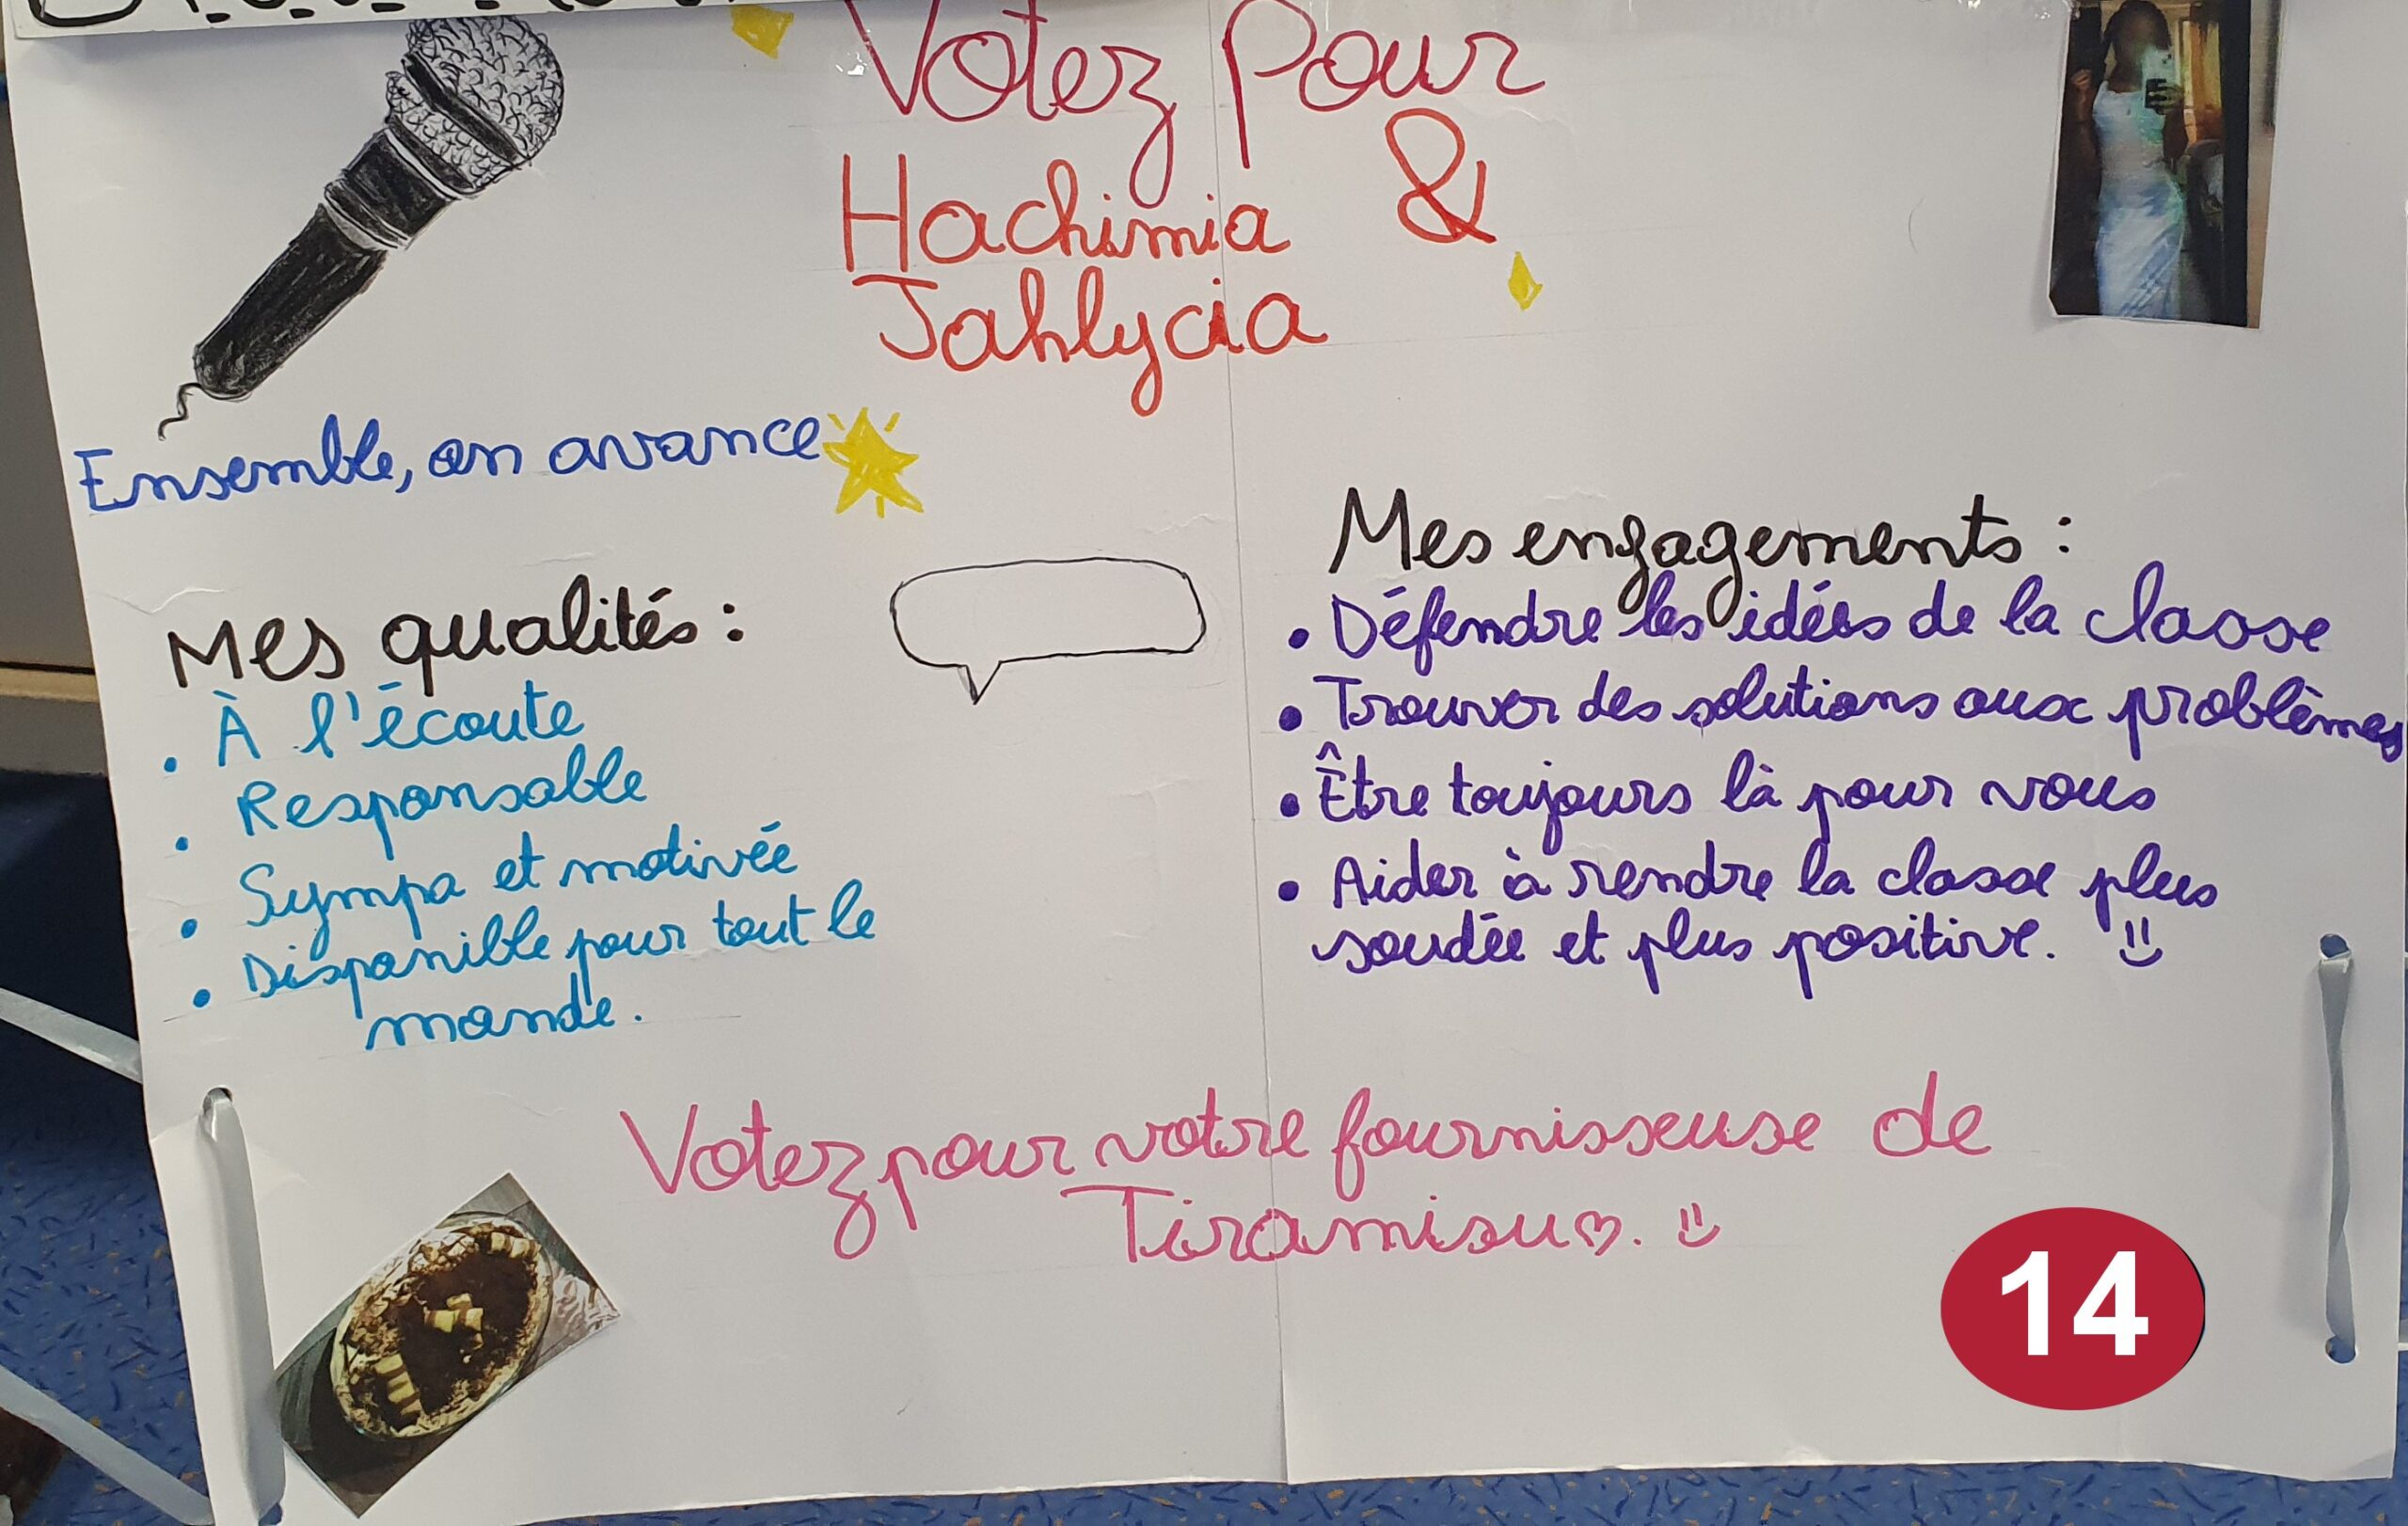 Votez Pour
Hachimia &
Jahlycia
Ensemble, on avance
Mes qualités :
. À l'écoute
. Responsable
. Sympa et motivée
. Disponible pour tout le
monde.
Mes engagements :
• Défendre les idées de la classe
• Trouver des solutions aux problèmes
• Être toujours là pour vous
• Aider à rendre la classe plus
soudée et plus positive.
Votez pour votre fournisseuse de
Tiramisu.
14